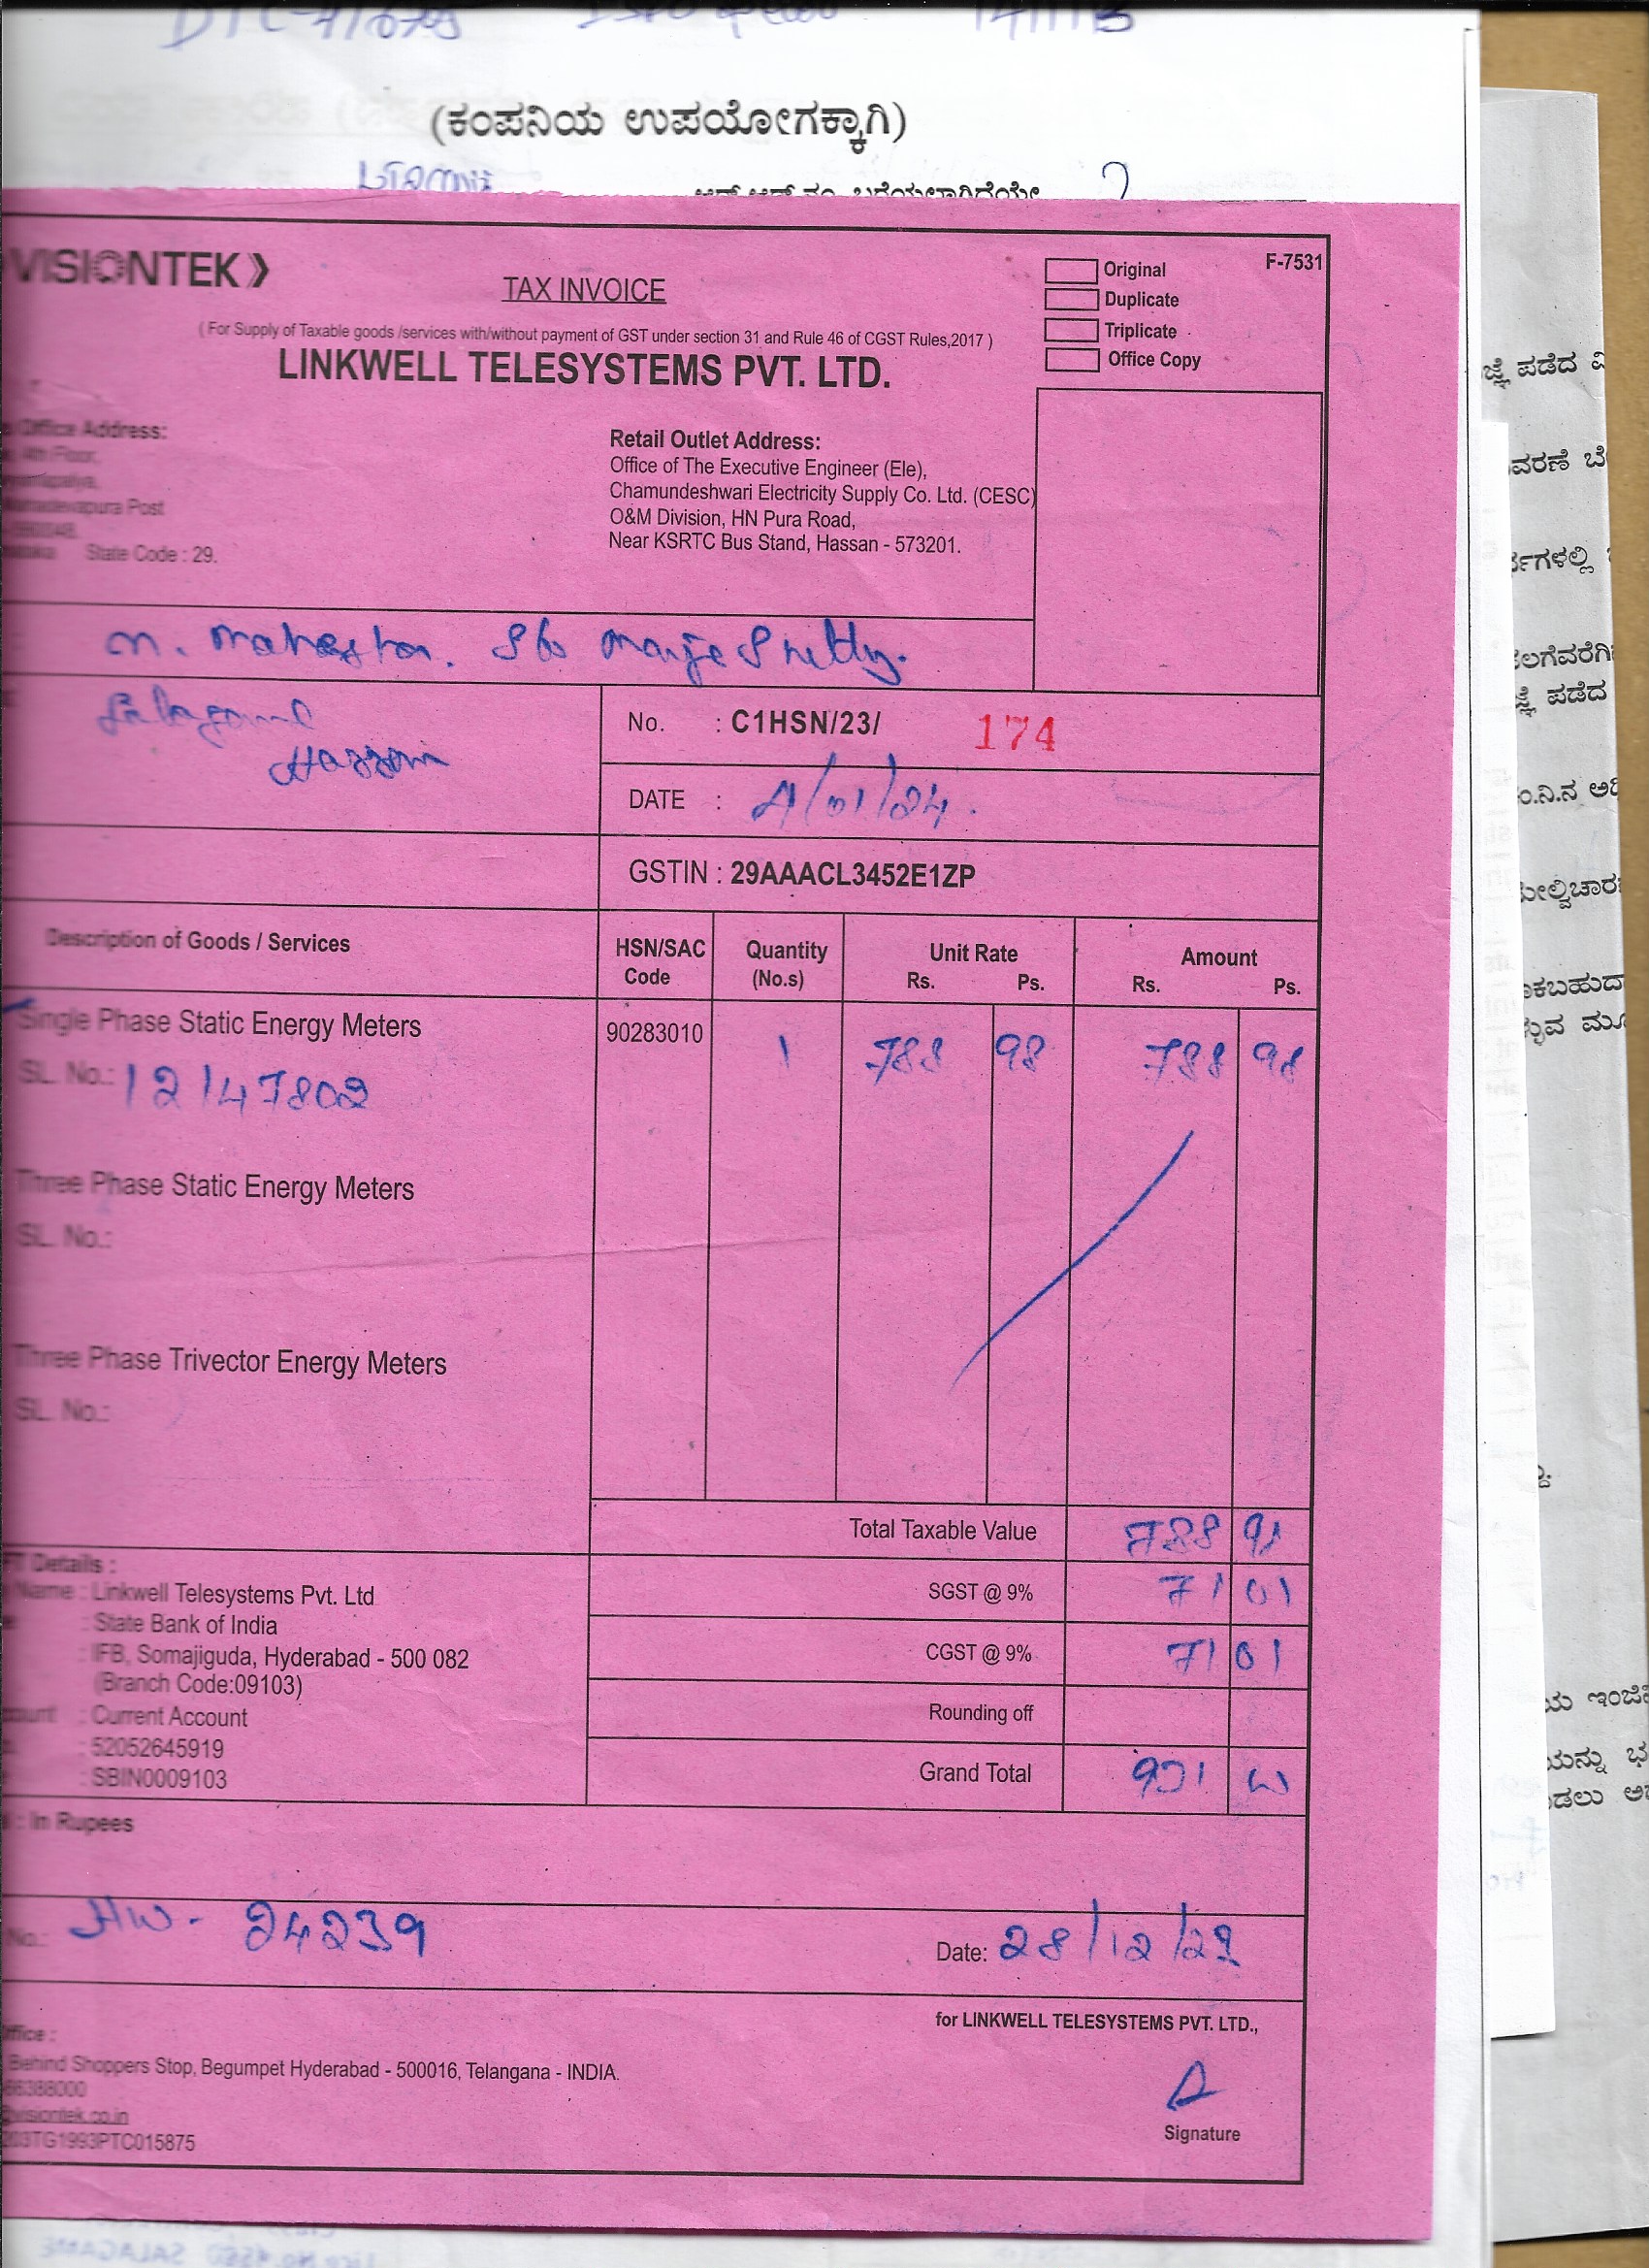 (ಕಂಪನಿಯ ಉಪಯೋಗಕ್ಕಾಗಿ)
VISIONTEK
TAX INVOICE
Original
F-7531
Duplicate
Triplicate
Office Copy
( For Supply of Taxable goods /services with/without payment of GST under section 31 and Rule 46 of CGST Rules,2017 )
LINKWELL TELESYSTEMS PVT. LTD.
Office Address:
4th Floor,
Mahadevapura Post
State Code : 29.
Retail Outlet Address:
Office of The Executive Engineer (Ele),
Chamundeshwari Electricity Supply Co. Ltd. (CESC)
O&M Division, HN Pura Road,
Near KSRTC Bus Stand, Hassan - 573201.
Hassan
No. : C1HSN/23/ 174
DATE : 4/01/24.
GSTIN : 29AAACL3452E1ZP
Description of Goods / Services HSN/SAC Code Quantity (No.s) Unit Rate Rs. Ps. Amount Rs. Ps.
Single Phase Static Energy Meters 90283010 1 788 98 788 98
SL. No.: 12147802
Three Phase Static Energy Meters
SL. No.:
Three Phase Trivector Energy Meters
SL. No.:
Total Taxable Value 788
Details :
SGST @ 9% 71 01
Name : Linkwell Telesystems Pvt. Ltd
: State Bank of India
CGST @ 9% 71 01
: IFB, Somajiguda, Hyderabad - 500 082
(Branch Code:09103)
Rounding off
: Current Account
: 52052645919
Grand Total 931
: SBIN0009103
: In Rupees
No.: 24239
Date: 28/12/23
for LINKWELL TELESYSTEMS PVT. LTD.,
Behind Shoppers Stop, Begumpet Hyderabad - 500016, Telangana - INDIA.
66388000
visiontek.co.in
TG1993PTC015875
Signature
ಪಡೆದ
ಪಡೆದ